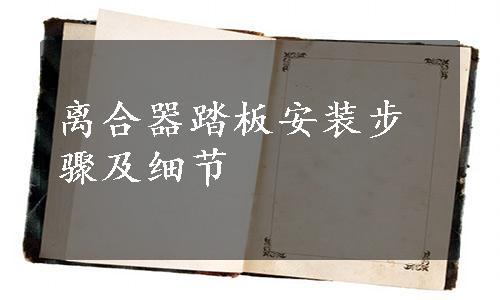 离合器踏板安装步
骤及细节